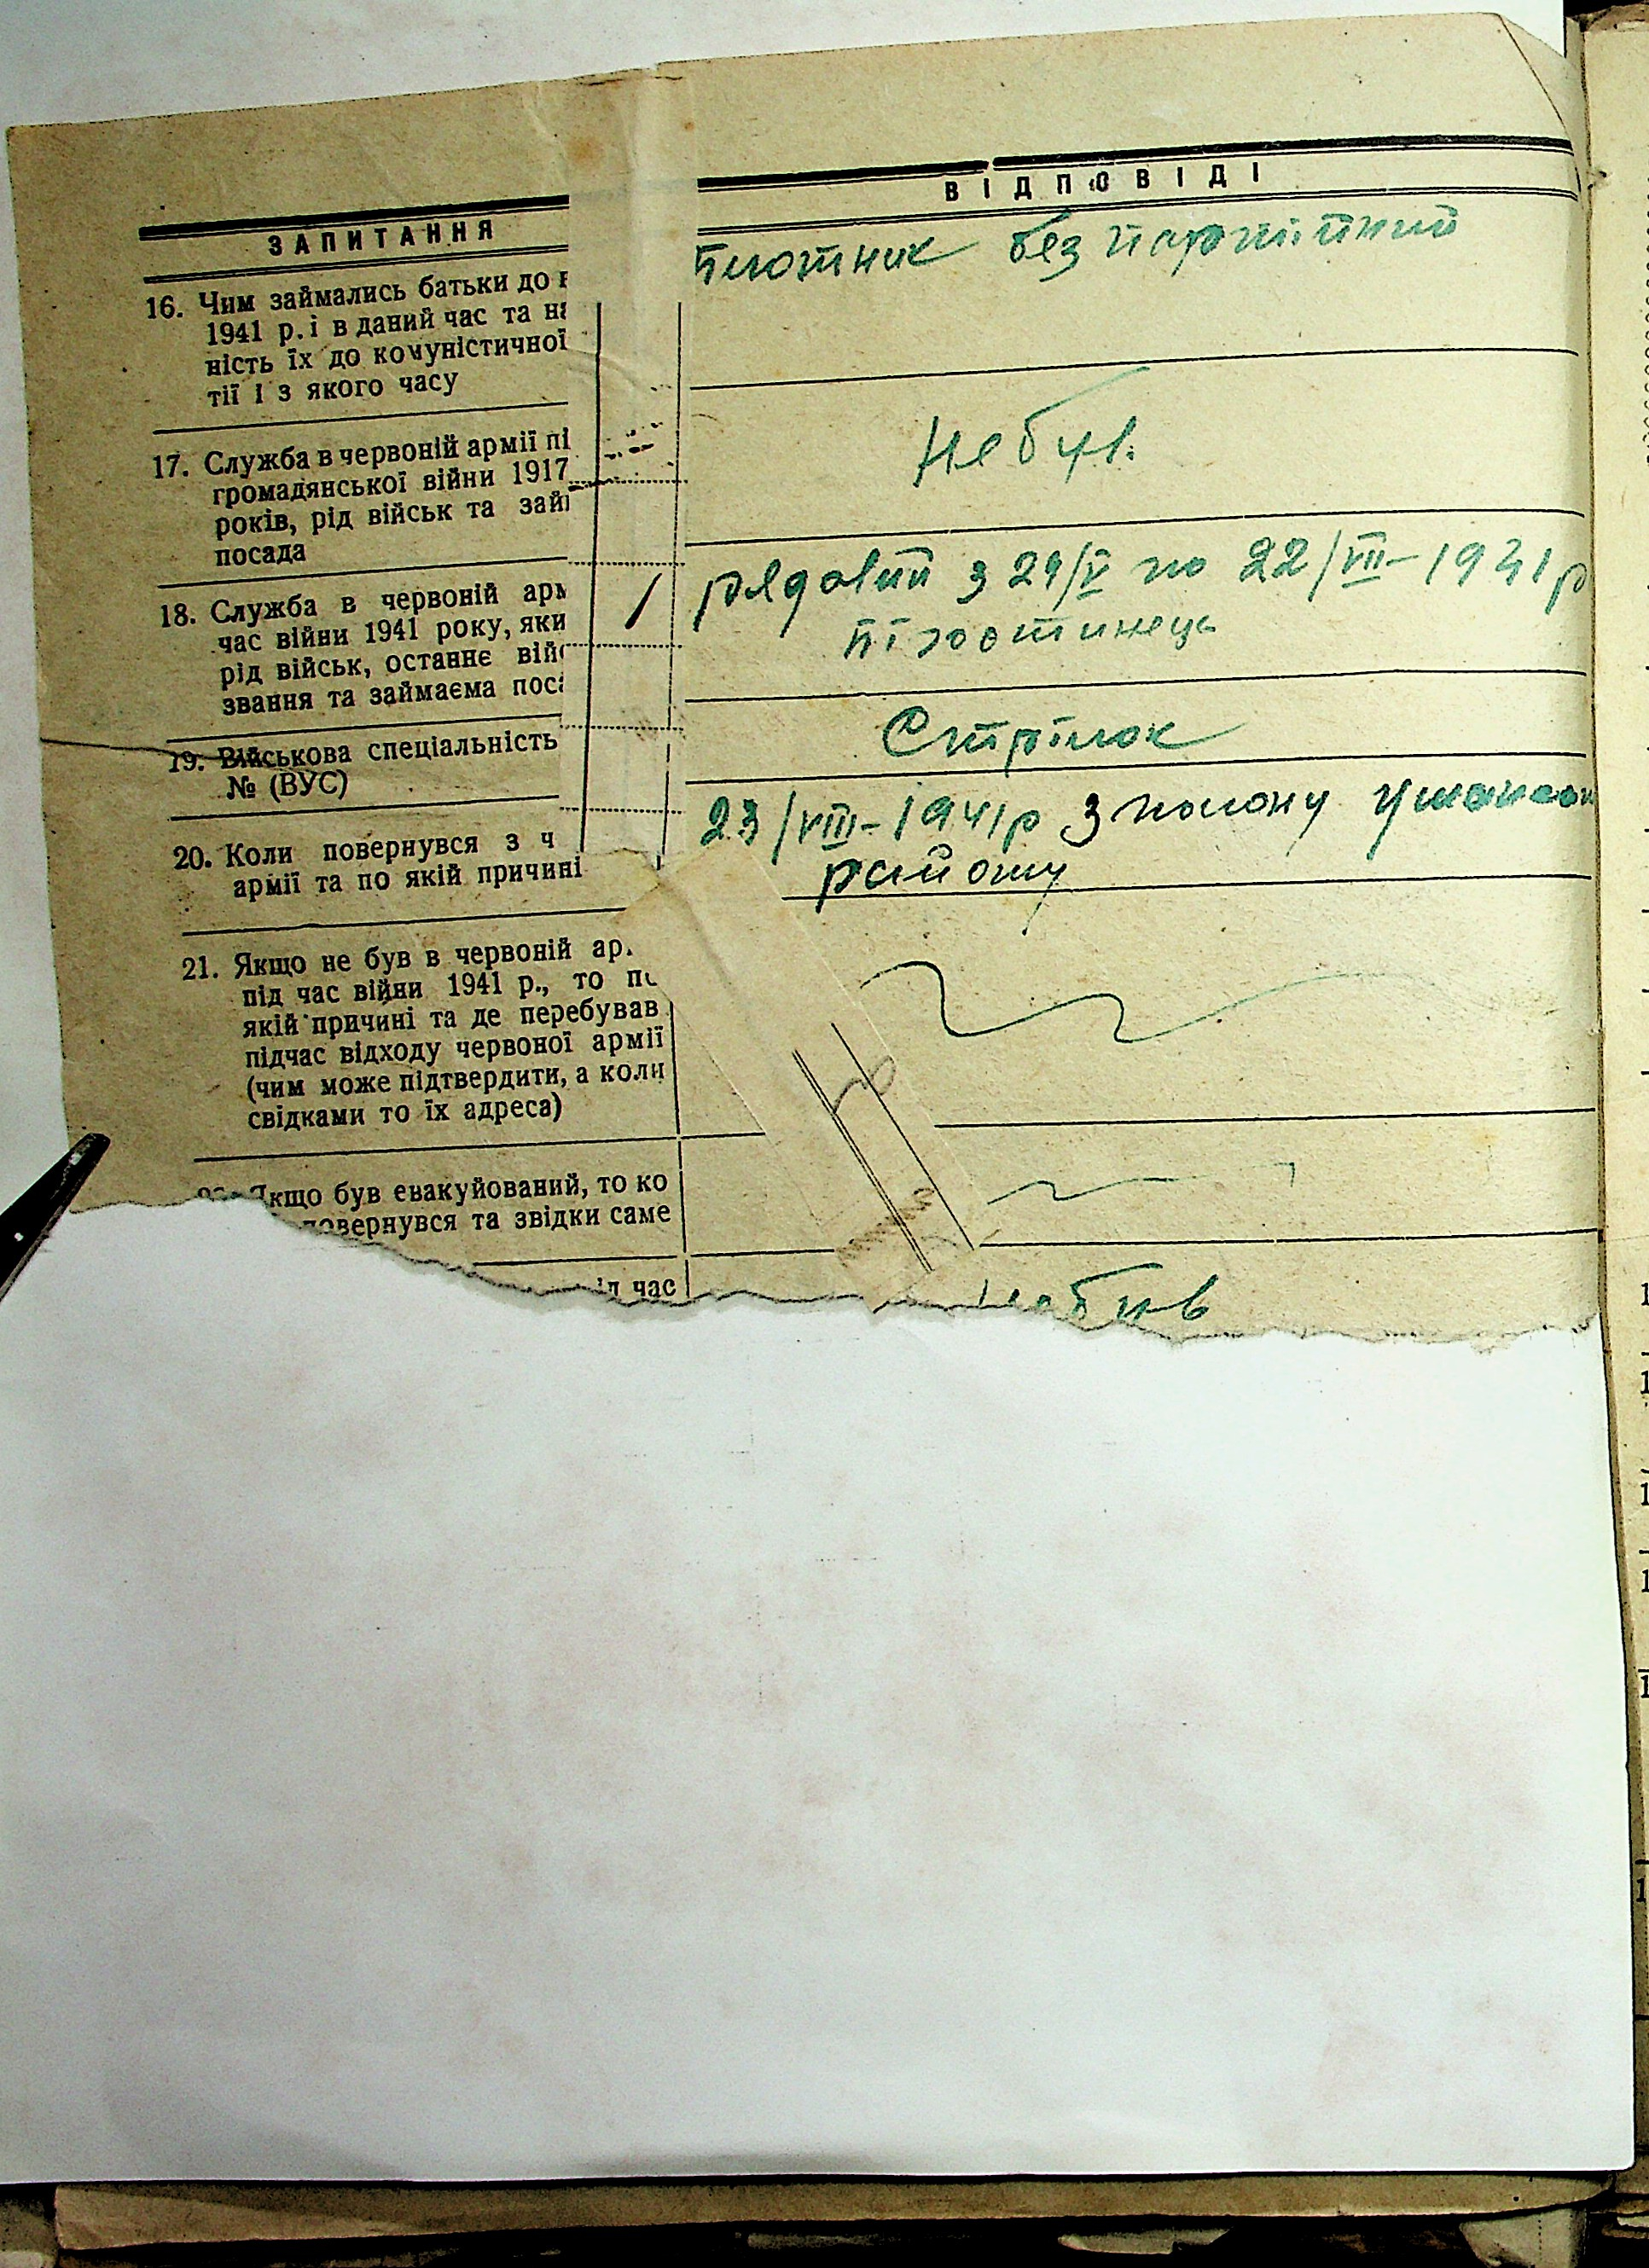 ЗАПИТАННЯ
ВІДПОВІДІ
16. Чим займались батьки до в
1941 р. і в даний час та на
ність їх до комуністичної
тії і з якого часу
плотник без партійний
17. Служба в червоній армії пі
громадянської війни 1917
років, рід військ та займ
посада
не був.
18. Служба в червоній арм
час війни 1941 року, яки
рід військ, останнє війс
звання та займаєма поса
рядовий з 29/V по 22/VII-1941р
19. Військова спеціальність
№ (ВУС)
Стрілок
20. Коли повернувся з ч
армії та по якій причині
23/VIII-1941р з полону
району
21. Якщо не був в червоній ар.
під час війни 1941 р., то по
якій причині та де перебував
підчас відходу червоної армії
(чим може підтвердити, а коли
свідками то їх адреса)
Якщо був евакуйований, то ко
повернувся та звідки саме
час